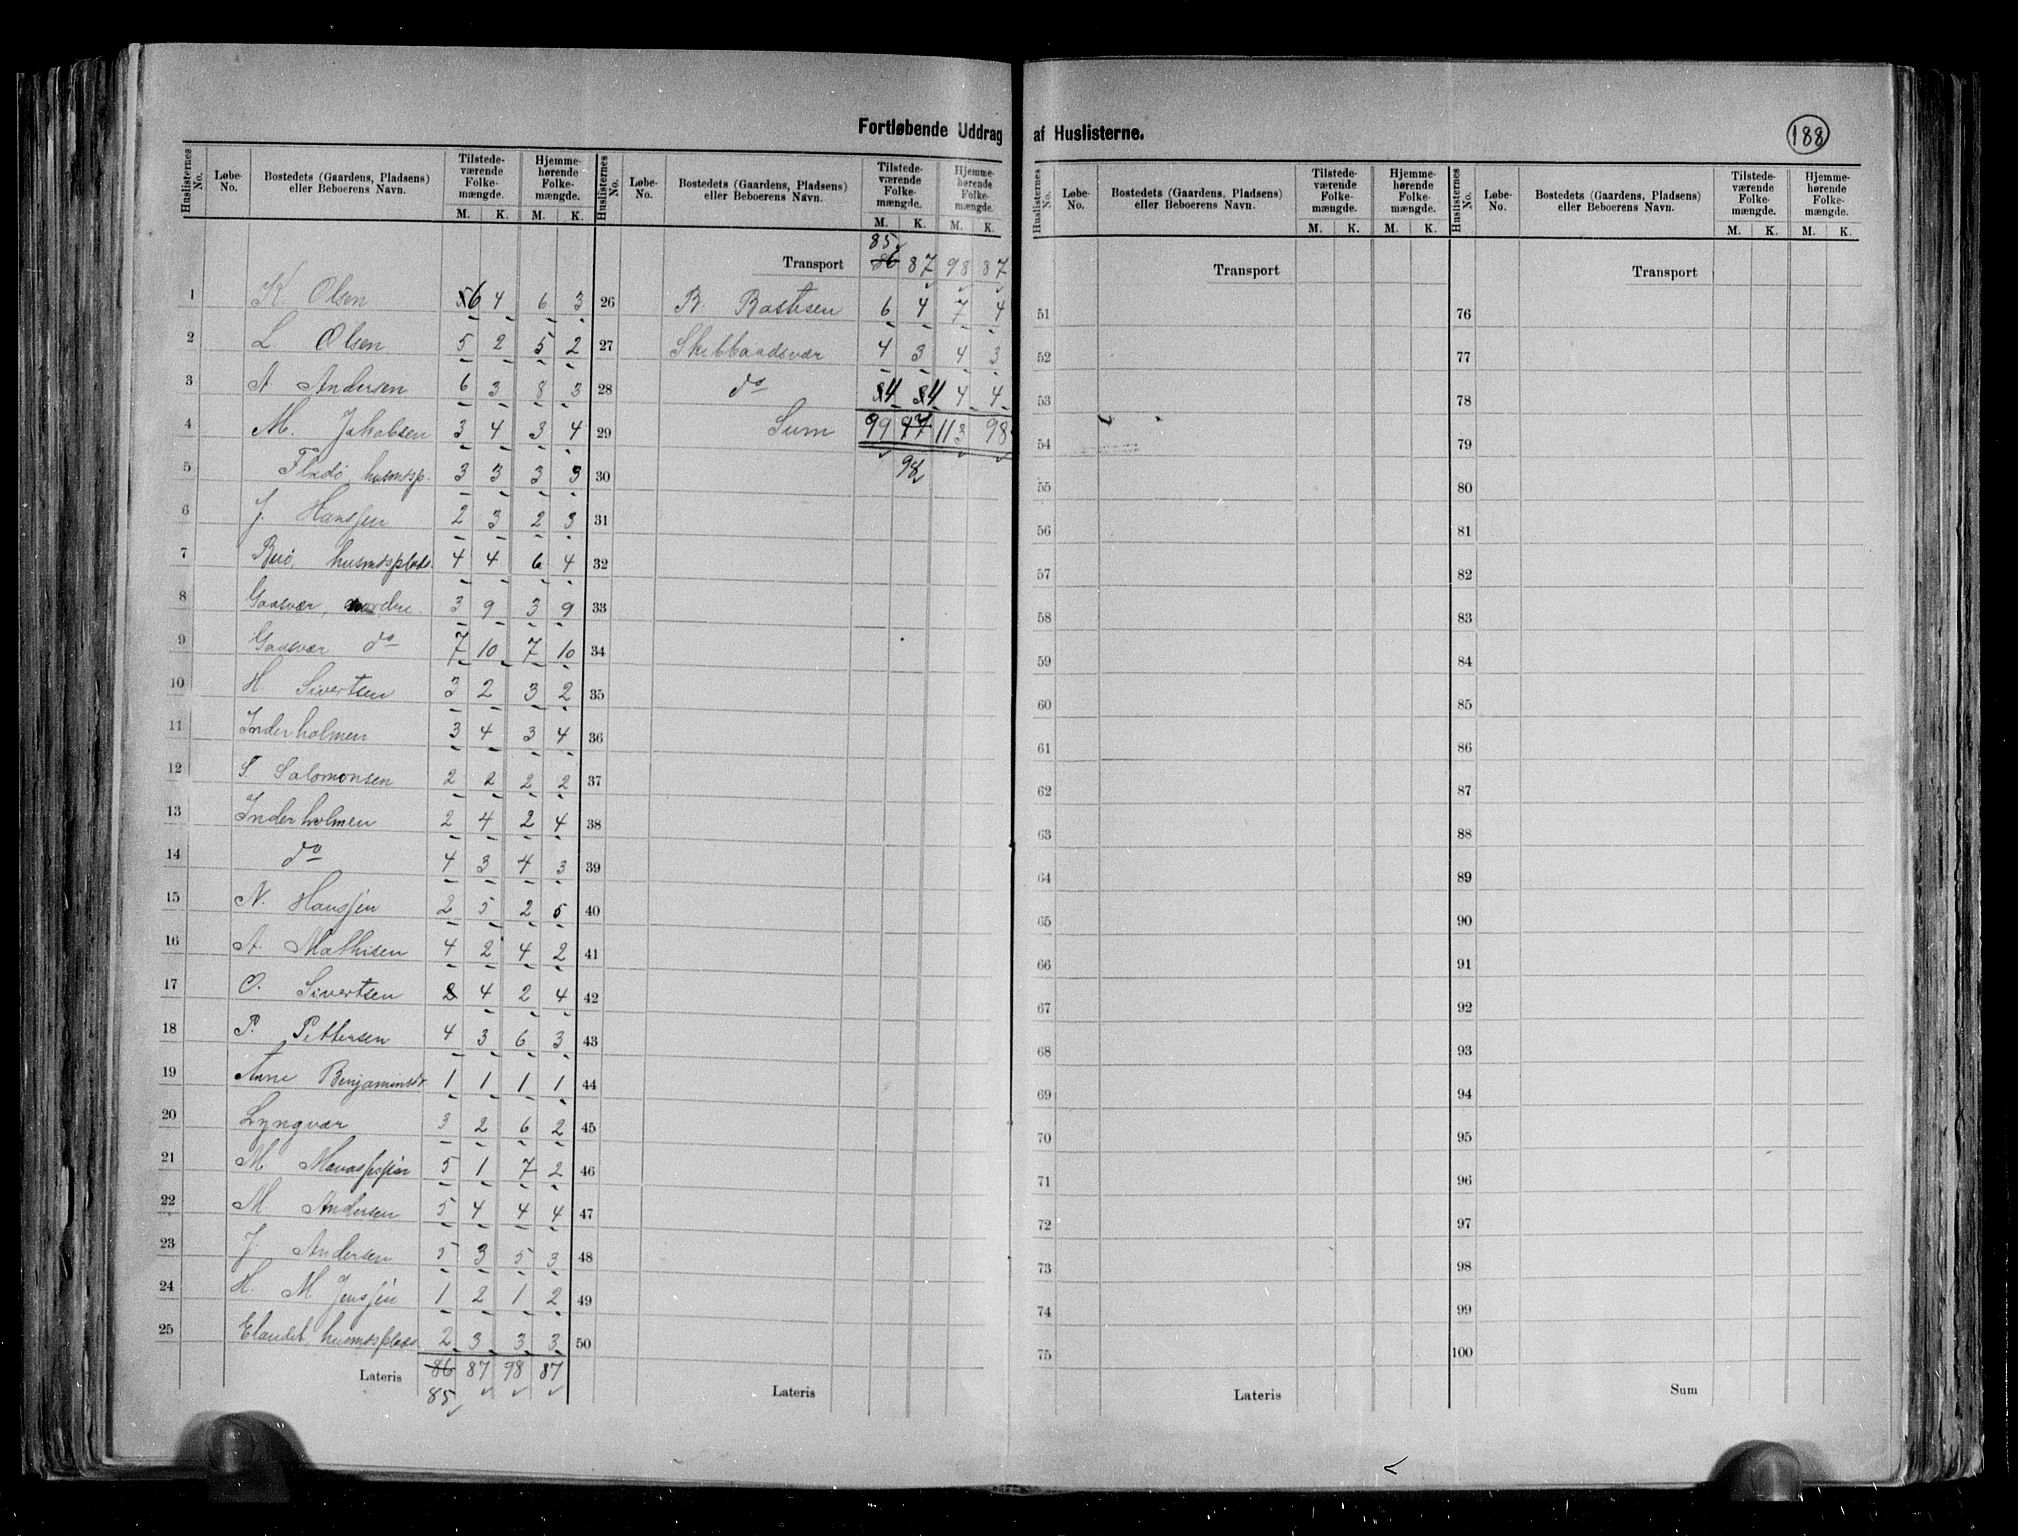 Fortløbende Uddrag af Huslisterne.
188
Huslisternes No. Løbe-No. Bostedets (Gaardens, Pladsen) eller Beboerens Navn. Tilstedeværende Folkemængde. M. K. Hjemmehørende Folkemængde. M. K.
1 K. Olsen 6 4 6 3
2 L Olsen 5 2 5 2
3 A Andersen 6 3 8 3
4 M. Jakobsen 3 4 3 4
5 Fladø, husmdsp. 3 3 3 3
6 J. Hansjen 2 3 2 3
7 Buø, husmdsplads 4 4 6 4
8 Gaasvær, nordre. 3 9 3 9
9 Gaasvær do 7 10 7 10
10 H Sivertsen 3 2 3 2
11 Inderholmen 3 4 3 4
12 S. Salomonsen 2 2 2 2
13 Inderholmen 2 4 2 4
14 do 4 3 4 3
15 N. Hansjen 2 5 2 5
16 A. Mathisen 4 2 4 2
17 O. Sivertsen 4 2 4
18 P. Pettersen 4 3 6 3
19 Anne Benjaminsdr 1 1 1 1
20 Lyngvær 3 2 6 2
21 M. 5 1 7 2
22 M. Andersen 5 4 4 4
23 J. Andersen 5 3 5 3
24 H. M Jensjen 1 2 1 2
25 Elandet, husmdsplads 2 3 3 3
Lateris 86 87 98 87
85
Huslisternes No. Løbe-No. Bostedets (Gaardens, Pladsen) eller Beboerens Navn. Tilstedeværende Folkemængde. M. K. Hjemmehørende Folkemængde. M. K.
85
Transport 86 87 98 87
26 B. Bastesen 6 4 7 4
27 Skibbaadsvær 4 3 4 3
28 do 4 4 4 4
29 Sum 99 97 113 98
98
30
31
32
33
34
35
36
37
38
39
40
41
42
43
44
45
46
47
48
49
50
Lateris
Huslisternes No. Løbe-No. Bostedets (Gaardens, Pladsens) eller Beboerens Navn. Tilstedeværende Folkemængde. M. K. Hjemmehørende Folkemængde. M. K.
Transport
51
52
53
54
55
56
57
58
59
60
61
62
63
64
65
66
67
68
69
70
71
72
73
74
75
Lateris
Huslisternes No. Løbe-No. Bostedets (Gaardens, Pladsens) eller Beboerens Navn. Tilstedeværende Folkemængde. M. K. Hjemmehørende Folkemængde. M. K.
Transport
76
77
78
79
80
81
82
83
84
85
86
87
88
89
90
91
92
93
94
95
96
97
98
99
100
Sum